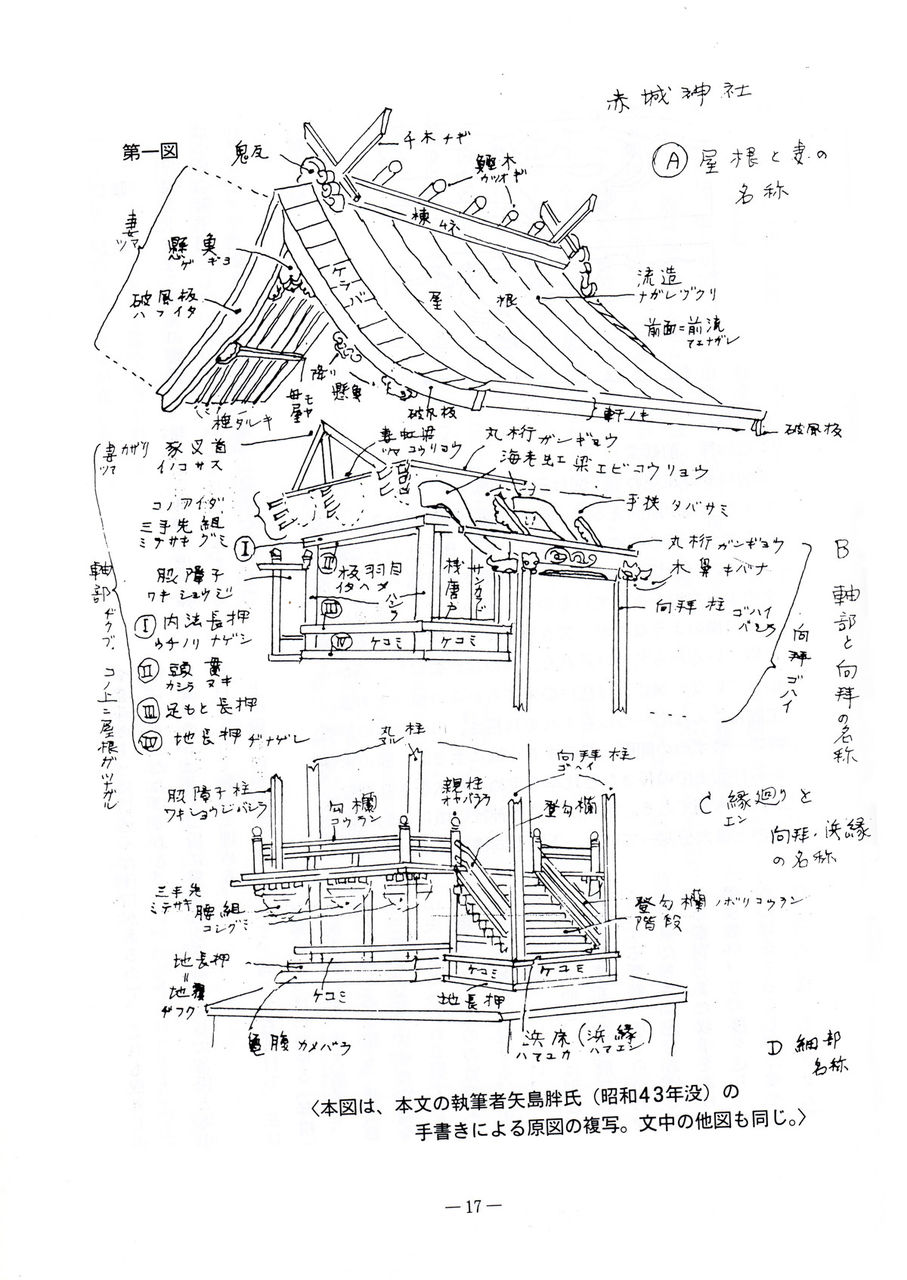 赤城神社
第一図
Ⓐ 屋根と妻の
名称
鬼瓦
千木 ナギ
鰹木
カツオギ
棟 ムネ
妻
ツマ
懸魚
ゲギヨ
破風板
ハフイタ
ケラバ
屋根
流造
ナガレヅクリ
前面=前流
マエナガレ
降リ
懸魚
母屋
モヤ
破風板
軒 ノキ
破風板
棰 タルキ
妻カザリ
ツマ
豕叉首
イノコサス
妻虹梁
ツマコウリョウ
丸桁 ガンギョウ
海老虹梁 エビコウリョウ
手挟 タバサミ
コノアイダ
三手先組
ミテサキグミ
Ⅰ
Ⅱ
Ⅲ
Ⅳ
板羽目
イタハメ
ハシラ
桟唐戸
サンカラド
丸桁 ガンギョウ
木鼻 キバナ
向拝柱
ゴハイ
脇障子
ワキショウジ
ケコミ
ケコミ
Ⅰ 内法長押
ウチノリナゲシ
Ⅱ 頭貫
カシラヌキ
Ⅲ 足もと長押
Ⅳ 地長押 ヂナゲシ
軸部 ヂクブ、コノ上ニ屋根ガツナガル
向拝 ゴハイ
B 軸部と向拝の名称
丸柱
マル
向拝柱
ゴハイ
脇障子柱
ワキショウジバシラ
勾欄
コウラン
親柱
オヤバシラ
登勾欄
C 縁廻りと
エン
向拝・浜縁
の名称
三手先
ミテサキ
腰組
コシグミ
登勾欄 ノボリコウラン
階段
地長押
〃
地覆
ヂフク
ケコミ
ケコミ
ケコミ
地長押
亀腹 カメバラ
浜床(浜縁)
ハマユカ ハマエン
D 細部
名称
〈本図は、本文の執筆者矢島胖氏(昭和43年没)の
手書きによる原図の複写。文中の他図も同じ。〉
—17—